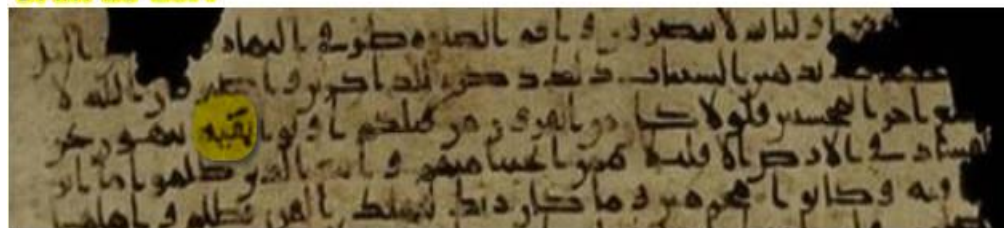 اوليا ثم لا تنصرون واقم الصلوه طرفي النهار و اليل
يذهبن السيات ذلك ذكرى للذكرين واصبر فان الله لا
يضيع اجر المحسنين فلولا كان من القرون من قبلكم اولوا بقيه ينهون عن
الفساد في الارض الا قليلا ممن انجينا منهم واتبع الذين ظلموا ما اتر
فيه وكانوا مجرمين وما كان ربك ليهلك القرى بظلم واهلها